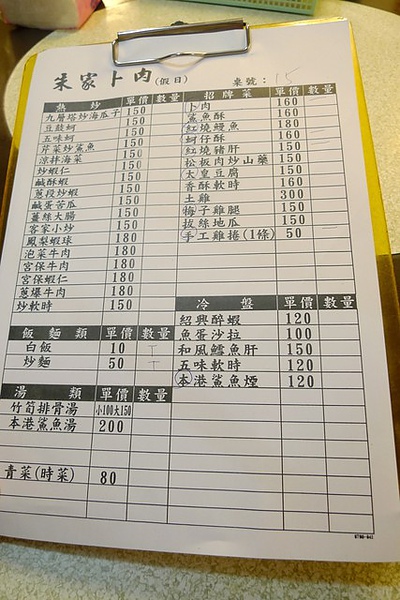 朱家卜肉(假日) 桌號：15
熱炒 單價 數量
九層塔炒海瓜子 150
豆鼓蚵 150
五味蚵 150
芹菜炒鯊魚 150
涼拌海菜 150
炒蝦仁 150
鹹酥蝦 150
蔥段炒蝦 150
鹹蛋苦瓜 150
薑絲大腸 150
客家小炒 150
鳳梨蝦球 180
泡菜牛肉 180
宮保牛肉 180
宮保蝦仁 180
蔥爆牛肉 180
炒軟時 150
飯麵類 單價 數量
白飯 10
炒麵 50
湯類 單價 數量
竹筍排骨湯 小100大150
本港鯊魚湯 200
青菜(時菜) 80
招牌菜 單價 數量
卜肉 160
鯊魚酥 160
紅燒鰻魚 180
蚵仔酥 160
紅燒豬肝 150
松板肉炒山藥 150
太皇豆腐 150
香酥軟時 160
土雞 300
梅子雞腿 150
拔絲地瓜 150
手工雞捲(1條) 50
冷盤 單價 數量
紹興醉蝦 120
魚蛋沙拉 100
和風鱈魚肝 150
五味軟時 120
本港鯊魚煙 120